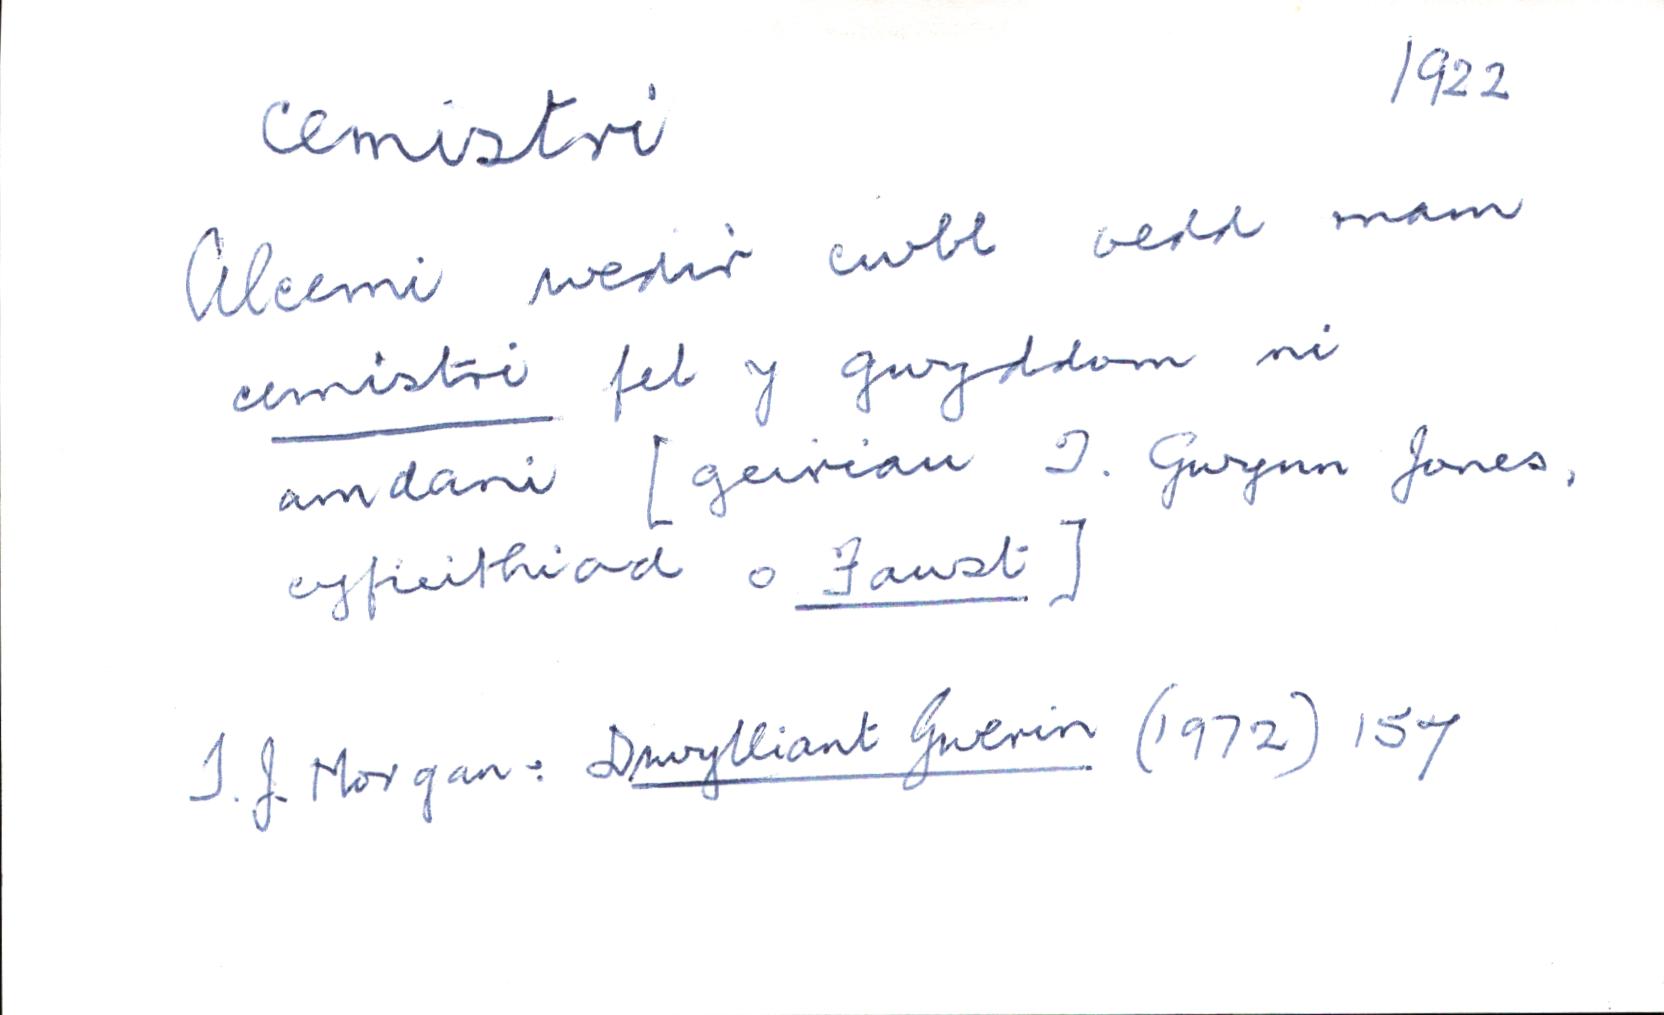 1922
cemistri
Alcemi wedi'r cwbl oedd mam
cemistri fel y gwyddom ni
amdani [geiriau T. Gwynn Jones,
cyfieithiad o Faust]
T. J. Morgan: Diwylliant Gwerin (1972) 157